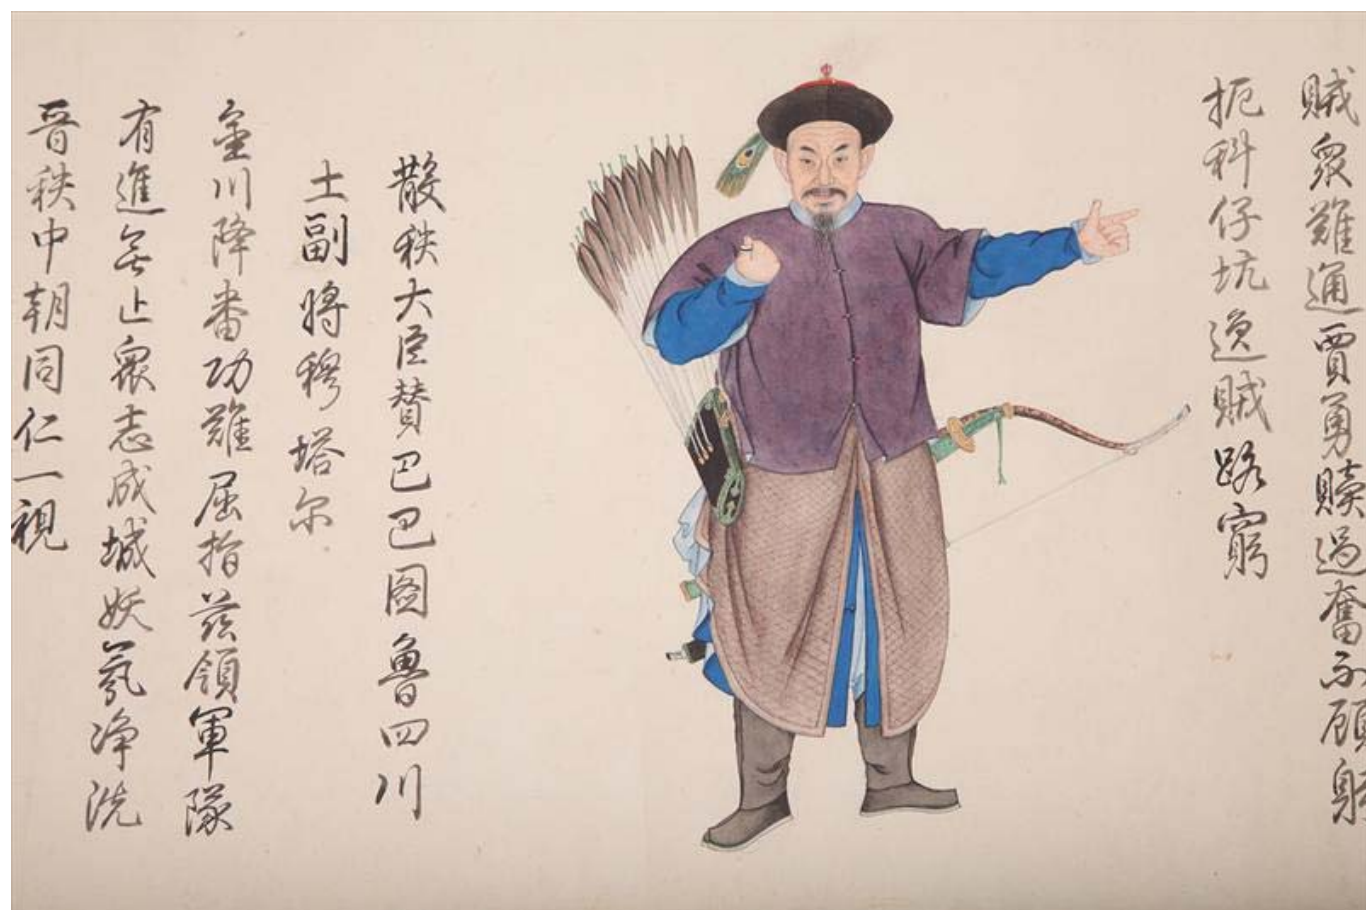 賊衆難通賈勇贖過奮不顧身
扼科仔坑逸賊路窮
散秩大臣贊巴巴圖魯四川
土副將穆塔尔
金川降番功難屈指茲領軍隊
有進無止衆志成城妖氛净洗
晉秩中朝同仁一視